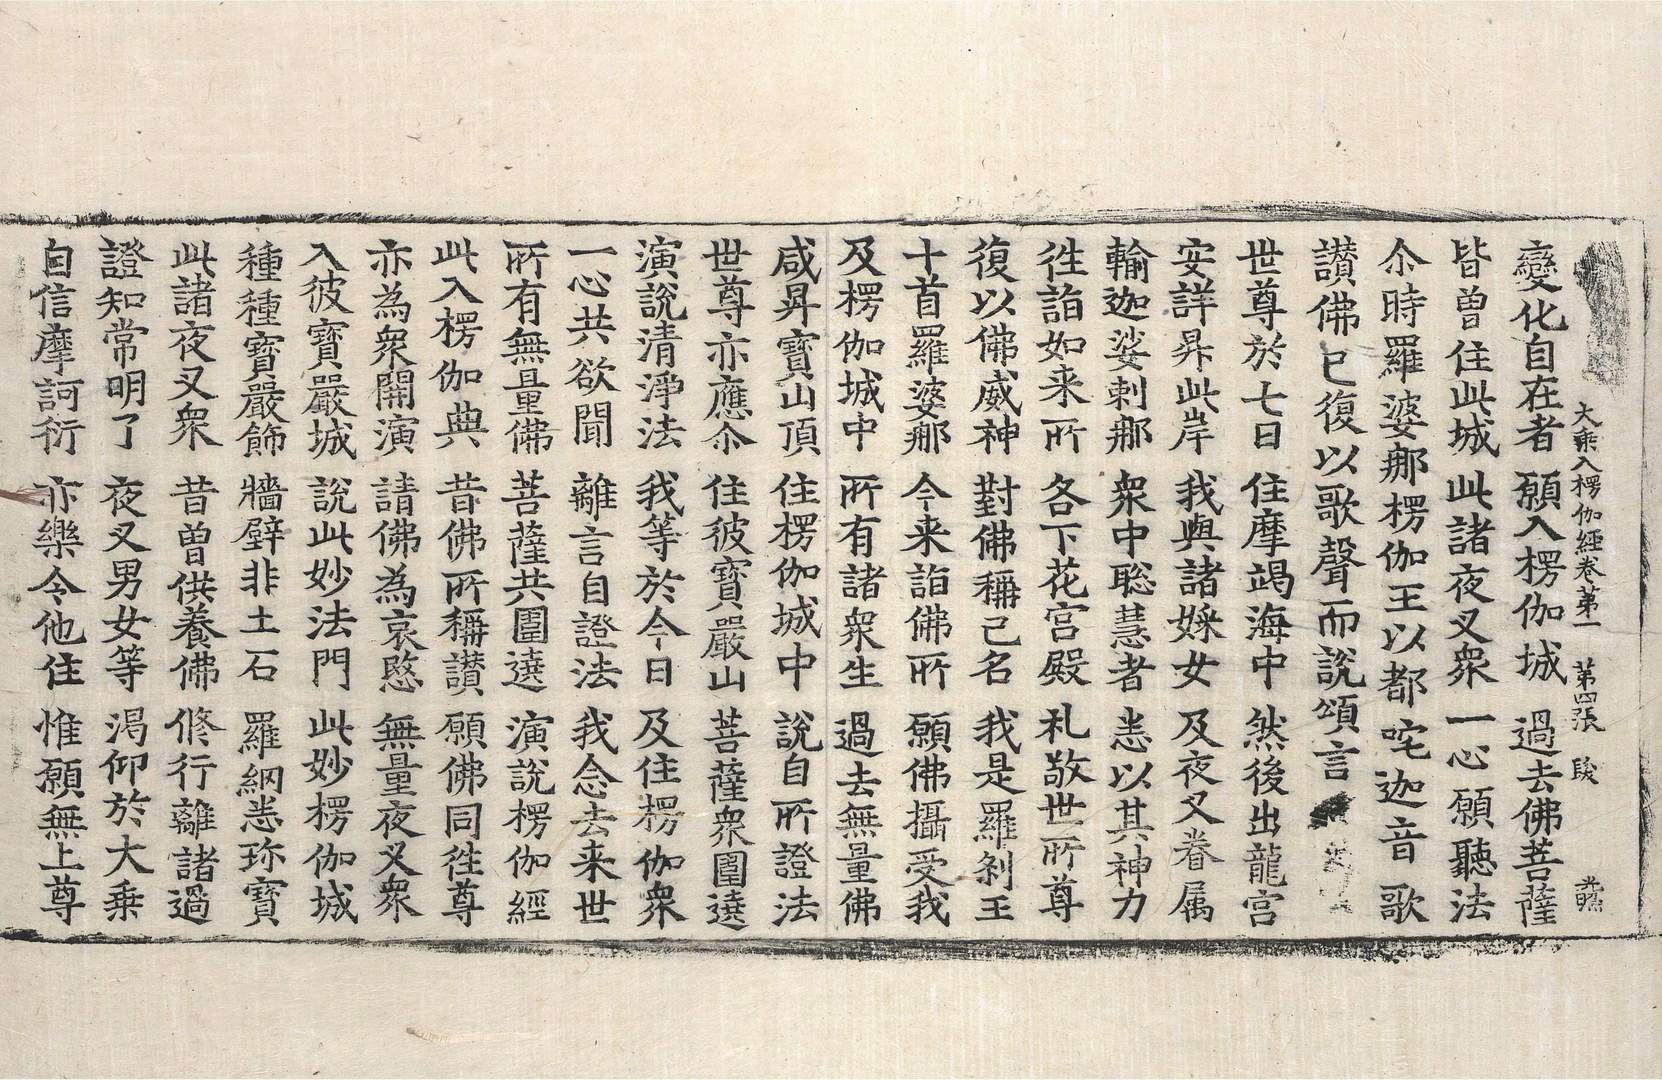 大乘入楞伽經卷第一 第四張 段
變化自在者 願入楞伽城 過去佛菩薩
皆曽住此城 此諸夜叉衆 一心願聽法
尒時羅婆那楞伽王以都咤迦音歌
讃佛已復以歌聲而說頌言
世尊於七日 住摩竭海中 然後出龍宫
安詳昇此岸 我與諸婇女 及夜叉眷属
輸迦娑剌那 衆中聡慧者 悉以其神力
徃詣如来所 各下花宫殿 礼敬世所尊
復以佛威神 對佛稱己名 我是羅刹王
十首羅婆那 今来詣佛所 願佛攝受我
及楞伽城中 所有諸衆生 過去無量佛
咸昇寶山頂 住楞伽城中 說自所證法
世尊亦應尒 住彼寶嚴山 菩薩衆圍遶
演說清淨法 我等於今日 及住楞伽衆
一心共欲聞 離言自證法 我念去来世
所有無量佛 菩薩共圍遶 演說楞伽經
此入楞伽典 昔佛所稱讃 願佛同徃尊
亦為衆開演 請佛為哀愍 無量夜叉衆
入彼寶嚴城 說此妙法門 此妙楞伽城
種種寶嚴飾 牆壁非土石 羅網悉珎寶
此諸夜叉衆 昔曽供養佛 修行離諸過
證知常明了 夜叉男女等 渇仰於大乗
自信摩訶衍 亦樂令他住 惟願無上尊